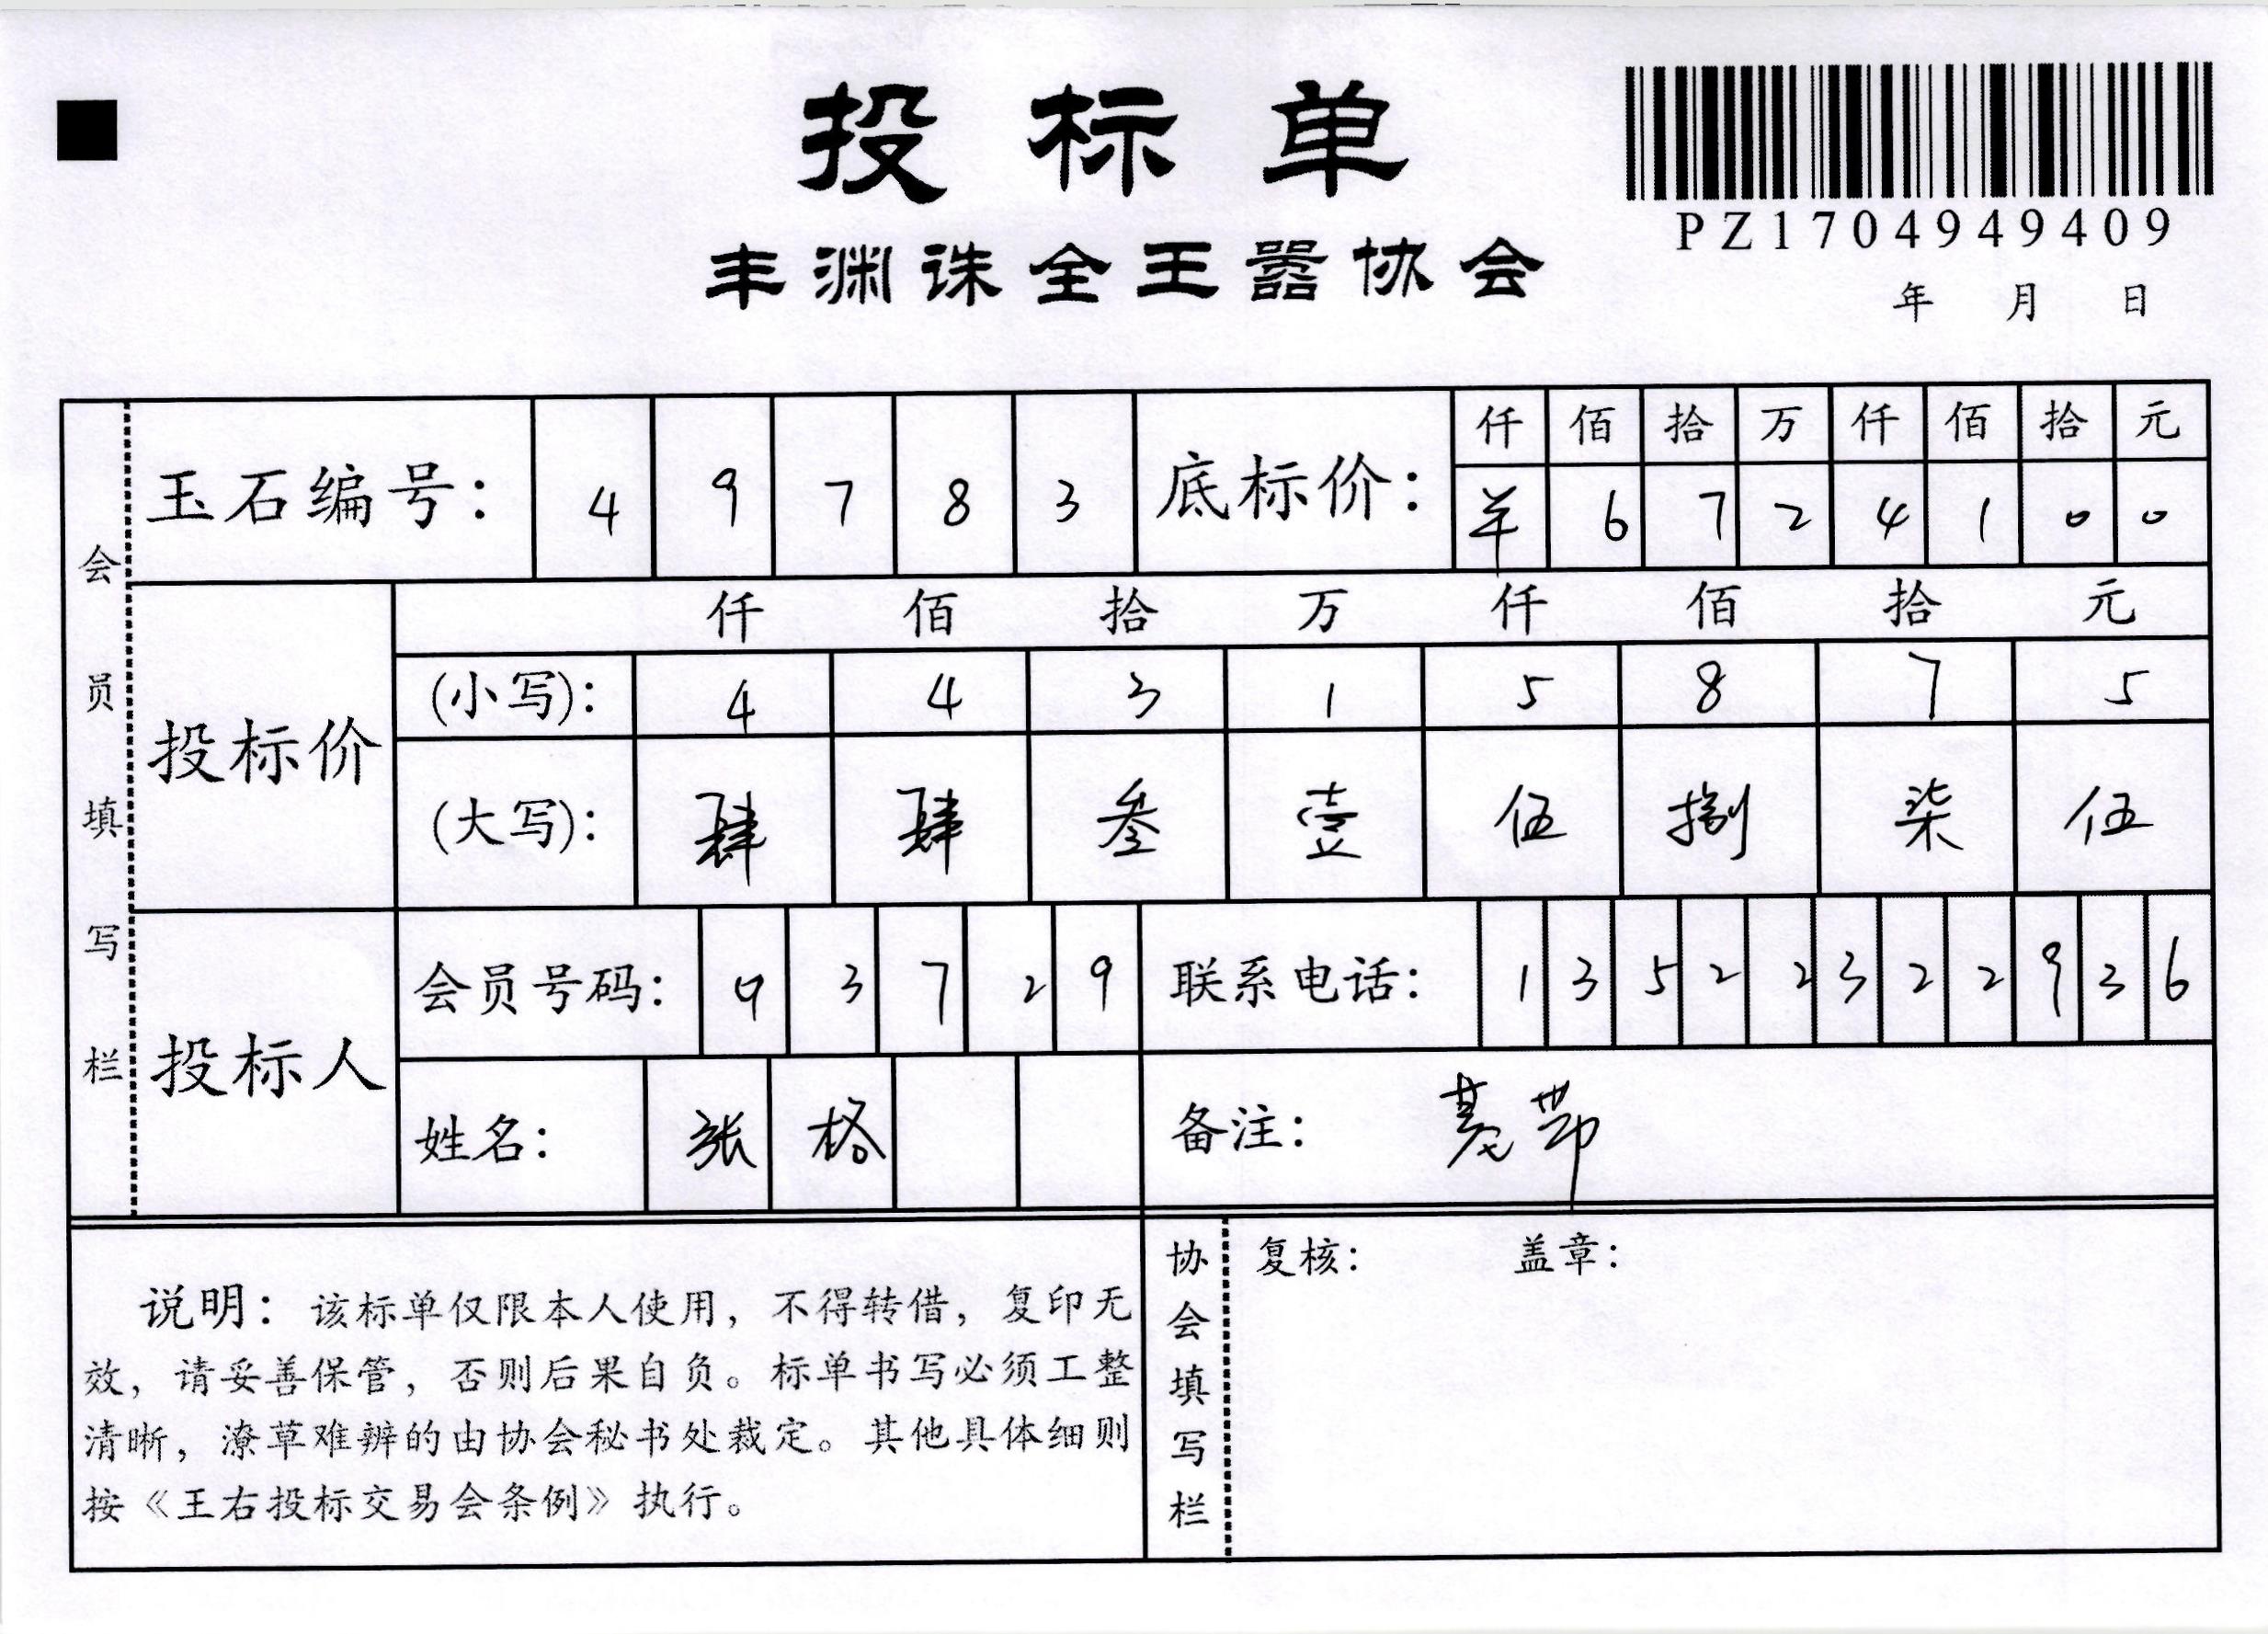 投标单
PZ1704949409
丰渊诛全王嚣协会
年 月 日
会员填写栏
玉石编号： 4 9 7 8 3
底标价：
仟 佰 拾 万 仟 佰 拾 元
羊 6 7 2 4 1 0 0
投标价
仟 佰 拾 万 仟 佰 拾 元
(小写)： 4 4 3 1 5 8 7 5
(大写)： 肆 肆 叁 壹 伍 捌 柒 伍
投标人
会员号码： 9 3 7 2 9
联系电话： 1 3 5 2 2 3 2 2 9 3 6
姓名： 张
备注：
说明：该标单仅限本人使用，不得转借，复印无
效，请妥善保管，否则后果自负。标单书写必须工整
清晰，潦草难辨的由协会秘书处裁定。其他具体细则
按《王右投标交易会条例》执行。
协会填写栏
复核： 盖章：